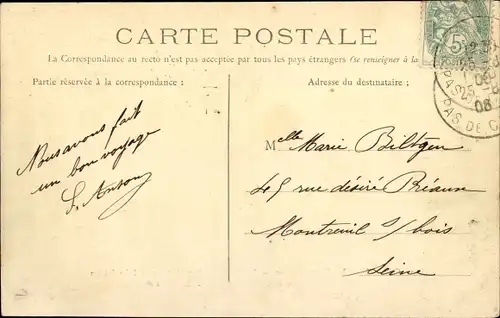 CARTE POSTALE
La Correspondance au recto n'est pas acceptée par tous les pays étrangers (se renseigner à la
Partie réservée à la correspondance :
Adresse du destinataire :
Nous avons fait
un bon voyage
Melle Marie Biltgen
rue désiré
Montreuil s/bois
Seine
5
08
PAS DE C